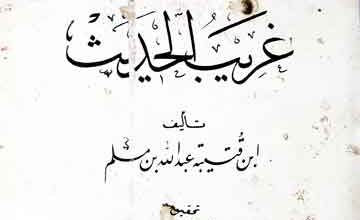 غريب الحديث
تأليف
ابن قتيبة عبد الله بن مسلم
تحقيق